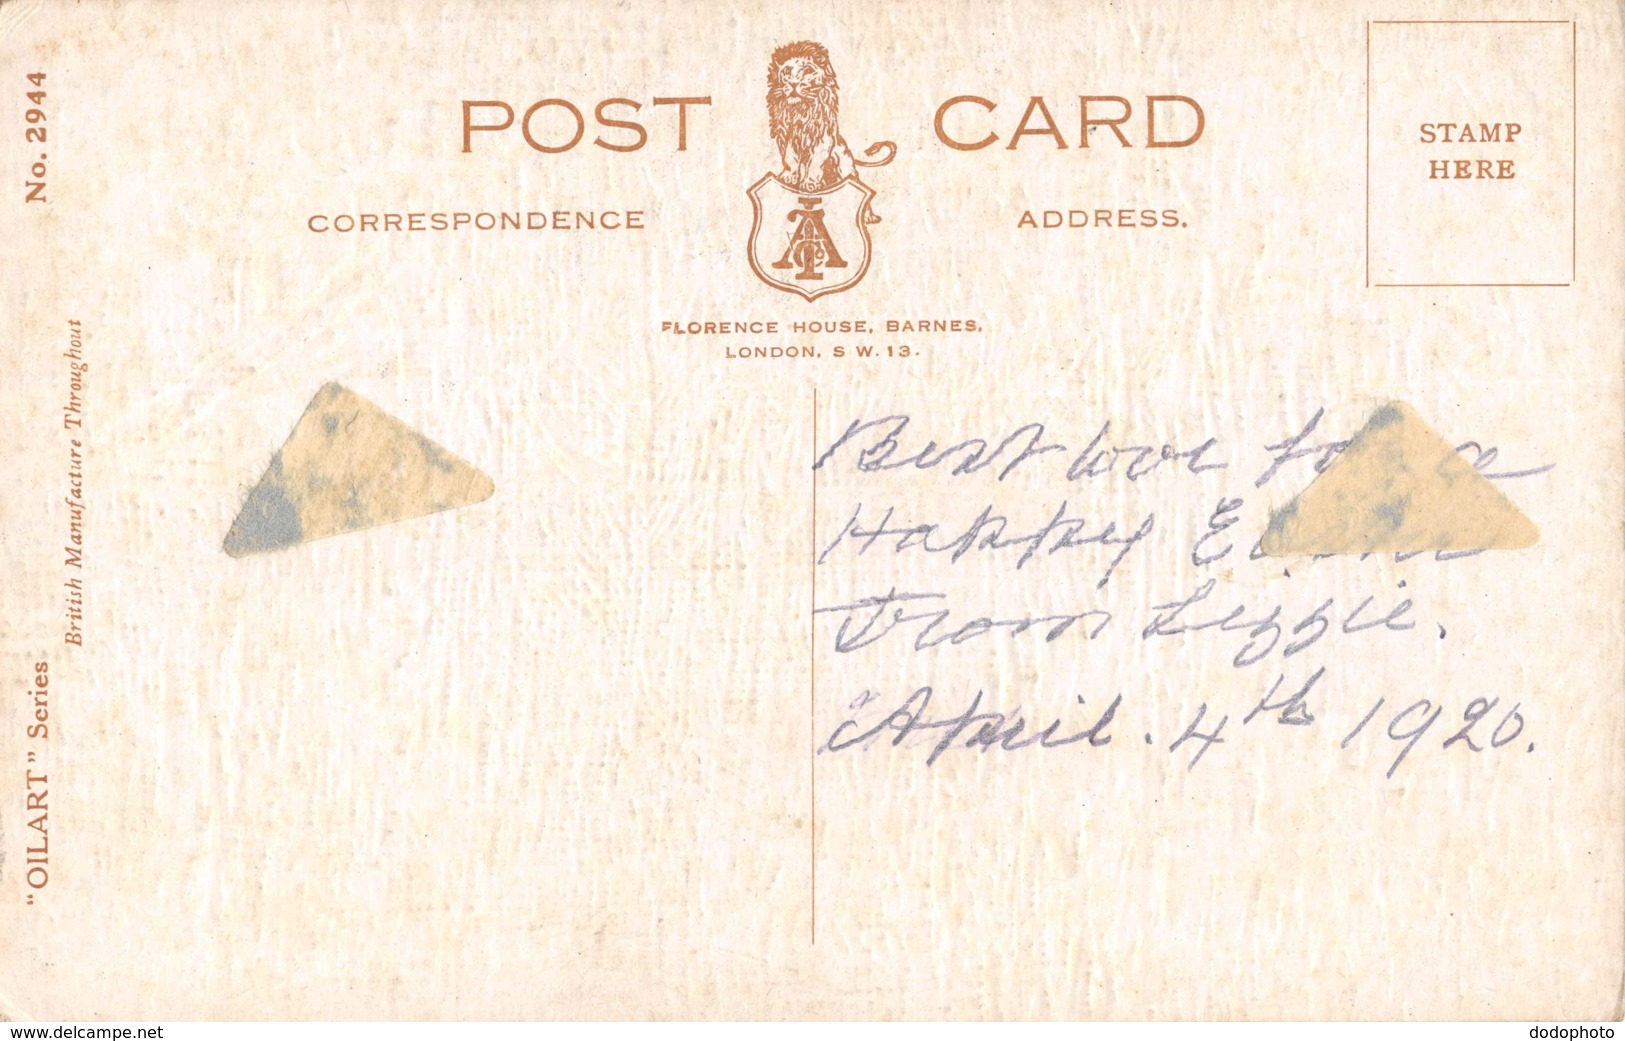 No. 2944
British Manufacture Throughout
"OILART" Series
POST CARD
CORRESPONDENCE
ADDRESS.
STAMP
HERE
FLORENCE HOUSE, BARNES,
LONDON, S W. 13.
Best love for a
Happy
From Lizzie.
April. 4th 1920.
www.delcampe.net
dodophoto